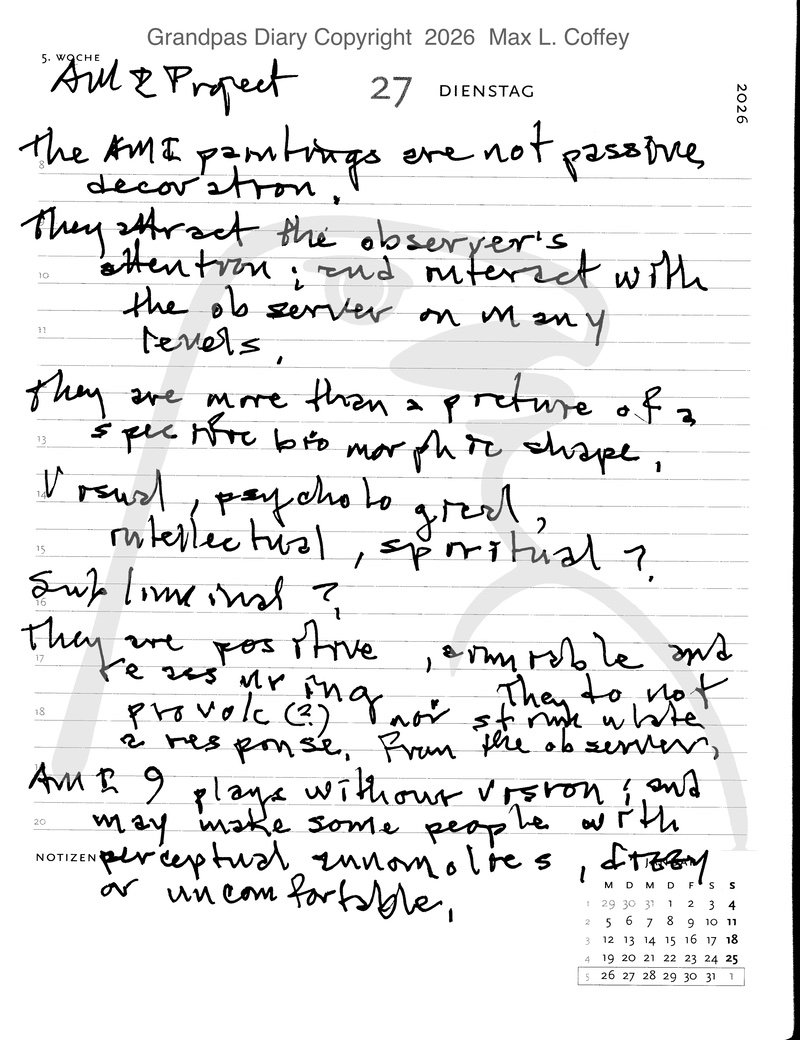 Grandpas Diary Copyright 2026 Max L. Coffey
5. WOCHE
AMI Project
27 DIENSTAG
2026
The AMI paintings are not passive
8
decoration.
They attract the observer's
attention; and interact with
10
the observer on many
11
levels.
They are more than a picture of a
13
specific biomorphic shape.
Visual, psychological,
14
intellectual, spiritual?
15
Subliminal?
16
They are positive, amirable and
17
reassuring They do not
provolc(?) nor stimulate
18
a response. From the observer,
AMI 9 plays without vision; and
may make some people with
20
NOTIZEN perceptual annomolies, dizzy
or uncomfortable.
JANUAR
M D M D F S S
1 29 30 31 1 2 3 4
2 5 6 7 8 9 10 11
3 12 13 14 15 16 17 18
4 19 20 21 22 23 24 25
5 26 27 28 29 30 31 1